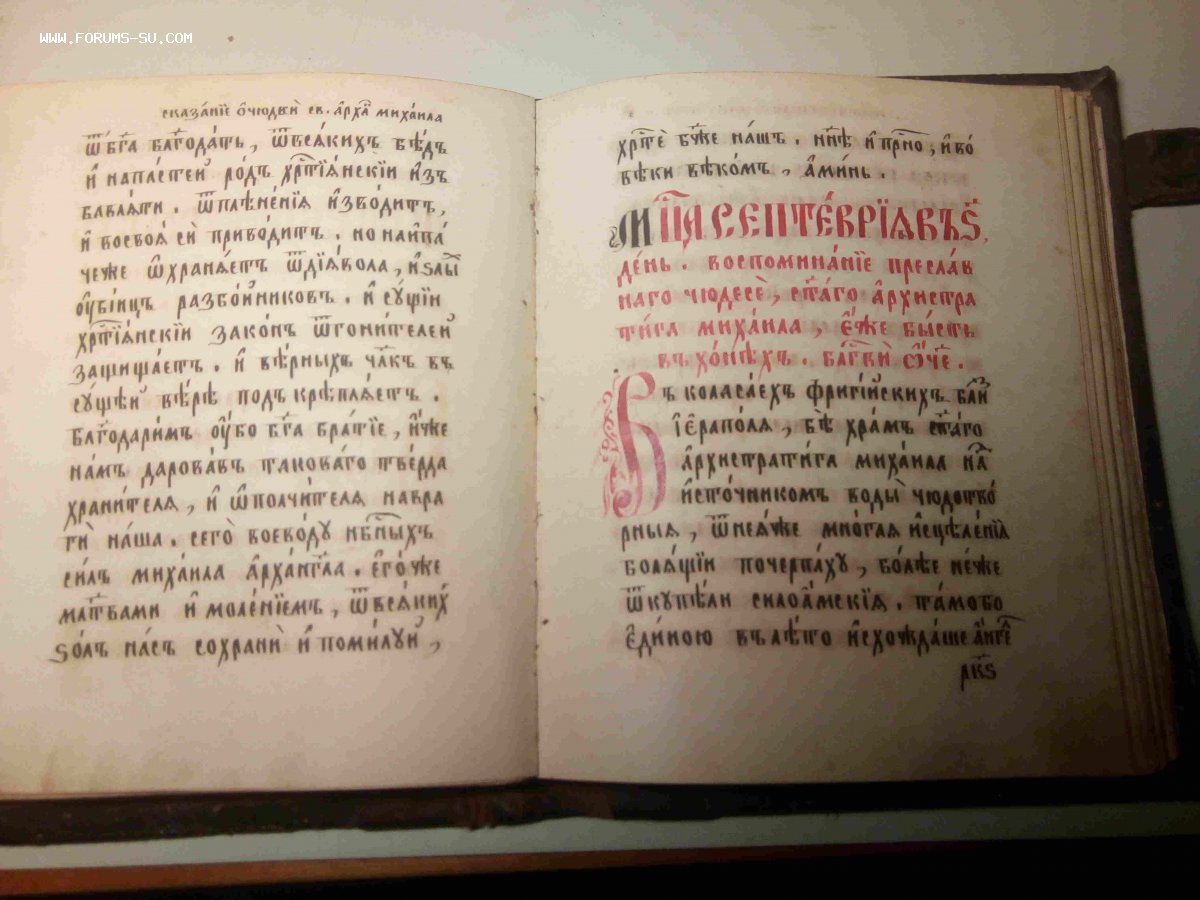 WWW.FORUMS-SU.COM
сказа́нїе ѡ҆чюдвѝ св. а҆рха́ михаи́ла
ѿбг҃а блг҃ода́ть, ѿвся́кихъ бѣ́дъ
и҆ напа́стей родъ хрⷭ҇тїя́нскїи и҆зъ
бавля́ти. ѿплѣне́нїя и҆зводитъ,
и҆ восвоя́ сѝ приводитъ. но наипа́
чеже ѡ҆храня́етъ ѿдїявола, и҆ѕлы́
оу҆бі́ицъ разбо́йниковъ. и҆ сꙋ́щїи
хрⷭ҇тїя́нскїи зако́нъ ѿгони́телей
защища́етъ. и҆ вѣ́рныхъ чл҃къ въ
сꙋ́щей вѣ́рѣ подъ крѣпля́етъ.
блг҃одари́мъ оу҆́бо бг҃а бра́тїе, и҆́же
на́мъ дарова́въ такова́го тве́рда
храни́теля, и҆ ѡ҆полчи́теля навра
гѝ на́ша. сего̀ воево́дꙋ нбⷭ҇ныхъ
си́лъ михаи́ла а҆рха́нгг҃ла. є҆го́же
мл҃твами и҆ моле́нїемъ, ѿвся́ких
ѕо́лъ на́съ сохранѝ и҆ поми́лꙋи,
хрⷭ҇тѐ бж҃е на́шъ. нн҃ѣ и҆ при́сно, и҆ во́
вѣ́ки вѣко́мъ, а҆ми́нь.
Мцⷭ҇а септе́врїя въ ѕ҃,
де́нь. воспомина́нїе пресла́в
наго чюдесѐ, ст҃а́го а҆рхистра
ти́га михаи́ла, є҆́же бы́сть
въ хо́нѣхъ. блг҃вѝ ѻ҆́ч҃е.
Въ коласа́ехъ фриги́йскихъ бли́з
і҆єрапо́ля, бѣ̀ хра́мъ ст҃а́го
а҆рхистрати́га михаи́ла на́
и҆сто́чникомъ воды̀ чюдотво́
рныя, ѿнея́же мно́гая и҆сцѣле́нїя
боля́щїи почерпа́хꙋ, бо́лѣе не́же
ѿкꙋпѣ́ли силоа́мскїя. та́мобо
є҆ди́ною въ лѣ́то и҆схожда́ше а҆́нгг҃е
рк҃ѕ